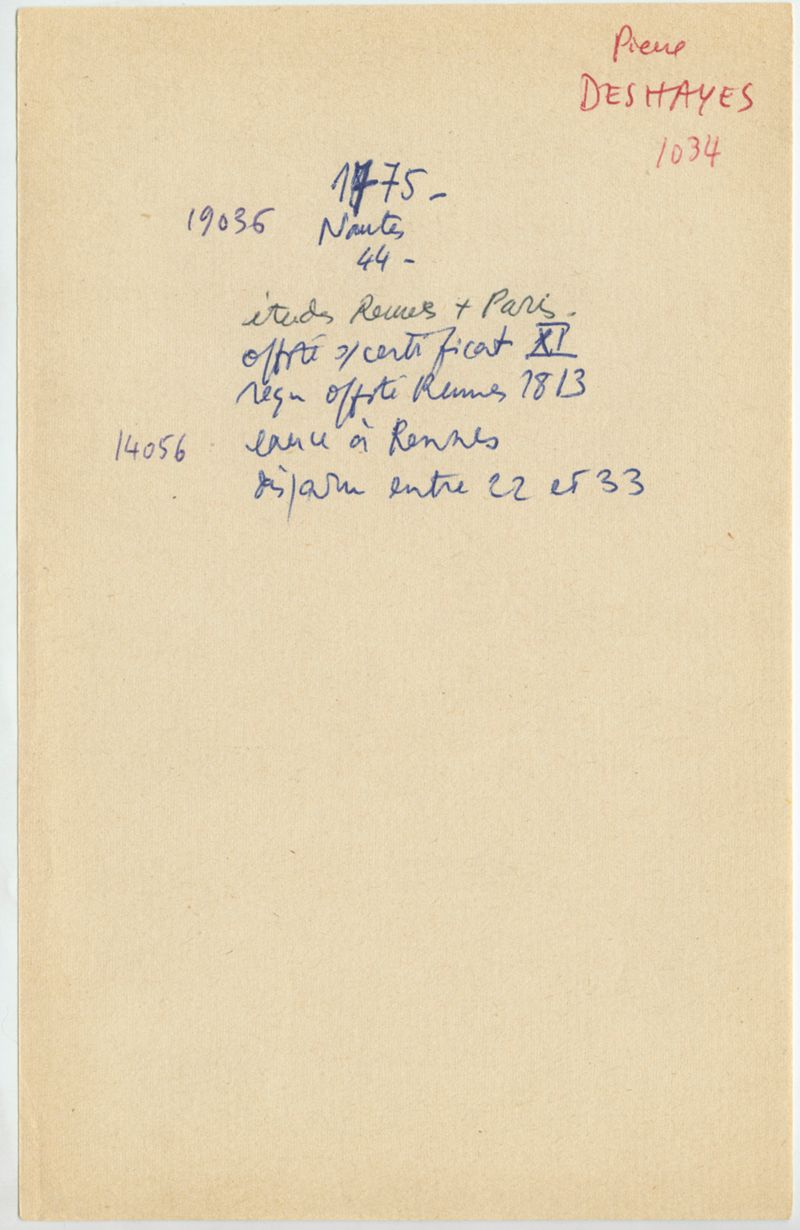 Pierre
DESHAYES
1034
1775 -
19036 Nantes
44 -
études Rennes + Paris.
offté s/certificat XI
reçu offté Rennes 1813
exerce à Rennes
14056
disparu entre 22 et 33